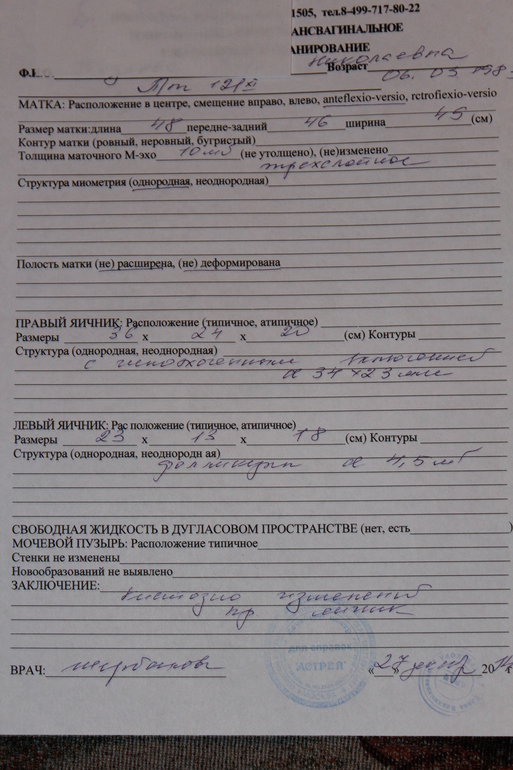 1505, тел.8-499-717-80-22
АНСВАГИНАЛЬНОЕ
АНИРОВАНИЕ
Николаевна
Ф.И. Возраст 06. 05 198
МАТКА: Расположение в центре, смещение вправо, влево, anteflexio-versio, rctroflexio-versio
Размер матки:длина 48 передне-задний 46 ширина 45 (см)
Контур матки (ровный, неровный, бугристый)
Толщина маточного М-эхо 10мм (не утолщено), (не)изменено
трехслойное
Структура миометрия (однородная, неоднородная)
Полость матки (не) расширена, (не) деформирована
ПРАВЫЙ ЯИЧНИК: Расположение (типичное, атипичное)
Размеры 36 х 24 х 20 (см) Контуры
Структура (однородная, неоднородная)
с гипоэхогенным включением
d 34х23 мм
ЛЕВЫЙ ЯИЧНИК: Рас положение (типичное, атипичное)
Размеры 23 х 13 х 18 (см) Контуры
Структура (однородная, неоднородн ая)
фолликулы d 4,5мм
СВОБОДНАЯ ЖИДКОСТЬ В ДУГЛАСОВОМ ПРОСТРАНСТВЕ (нет, есть )
МОЧЕВОЙ ПУЗЫРЬ: Расположение типичное
Стенки не изменены
Новообразований не выявлено
ЗАКЛЮЧЕНИЕ:
Кистозно измененный
пр яичник
для справок
"АСТРЕЯ"
ВРАЧ: «27» декабр 20 г